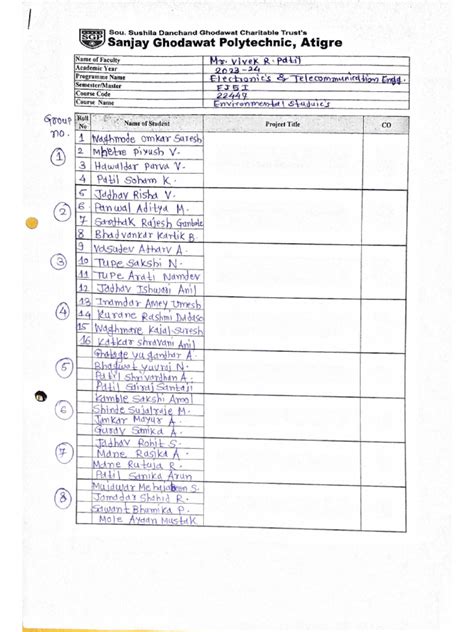 SGP
Sou. Sushila Danchand Ghodawat Charitable Trust's
Sanjay Ghodawat Polytechnic, Atigre
Name of Faculty Mr. Vivek R. Patil
Academic Year 2023-24
Programme Name Electronic's & Telecommunication Engg.
Semester/Master EJ5I
Course Code 22447
Course Name Environmental Studies
Group no. Roll No Name of Student Project Title CO
1 Waghmode Omkar Suresh
① 2 Mhetre Piyush V.
3 Hawaldar Parva V.
4 Patil Soham K.
5 Jadhav Risha V.
② 6 Panwal Aditya M.
7 Sarthak Rajesh Gambole
8 Bhadvankar Kartik B
9 Vasudev Atharv A.
③ 10 Tupe Sakshi N.
11 Tupe Arati Namdev
12 Jadhav Ishwari Anil
13 Inamdar Amey Umesh
④ 14 Kurane Rashmi Dadaso
15 Waghmare Kajal Suresh
16 Katkar Shravani Anil
Ghatage Yugandhar A.
⑤ Bhagwat Yuvraj N.
Patil Shrivardhan A.
Patil Sairaj Santaji
Kamble Sakshi Amol
⑥ Shinde Sujalraje M.
Mayur A.
Gurav Samika A.
Jadhav Rohit S.
⑦ Mane Rasika A.
Mane Rutuja R.
Patil Sanika Arun
Mujawar S.
⑧ Jamadar Shahid R.
Sawant Bhamika P.
Mole Ayaan Mustak